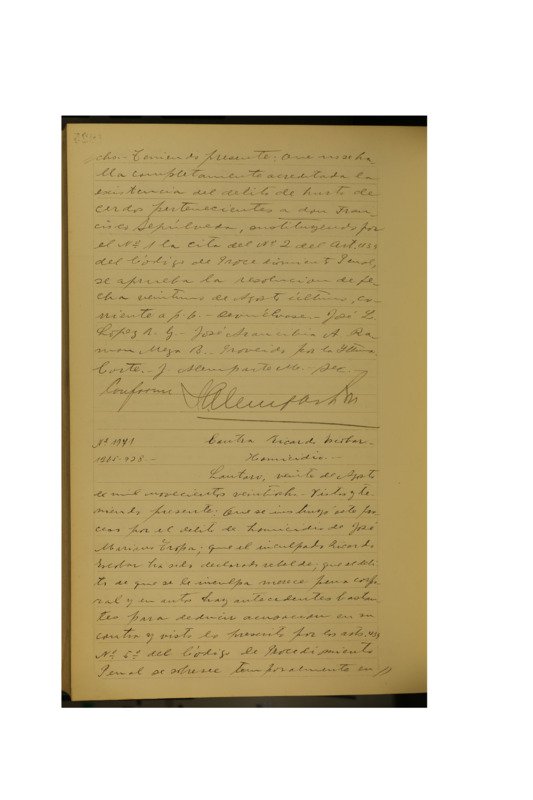 cho.- Teniendo presente: Que no se ha
lla completamente acreditada la
existencia del delito de hurto de
cerdos pertenecientes a don Fran
cisco Sepúlveda, sustituyendo por
el Nº 1 la cita del Nº 2 del Art.
del Código de Procedimiento Penal,
se aprueba la resolucion de fe
cha veintiuno de Agosto último, co-
rriente a f. 6.- Devuélvase.- José L.
Lopez R. G.- José Arancibia A. Ra
mon Meza B.- Proveido por la Iltma
Corte.- J. Alemparte M. Sec.-
Conforme
JAlemparte M
Nº 1941
Contra Ricardo Escobar.-
1905-238.-
Homicidio.-
Lautaro, veinte de Agosto
de mil novecientos veintiocho.- Vistos y te
niendo presente: Que se instruyó este pro
ceso por el delito de homicidio de José
Mariano Tropa; que el inculpado Ricardo
Escobar ha sido declarado rebelde; que el deli
to de que se le inculpa merece pena corpo
ral y en autos hay antecedentes bastan
tes para deducir acusacion en su
contra y visto lo prescrito por los arts.
Nº 5º del Código de Procedimiento
Penal se sobresee temporalmente en